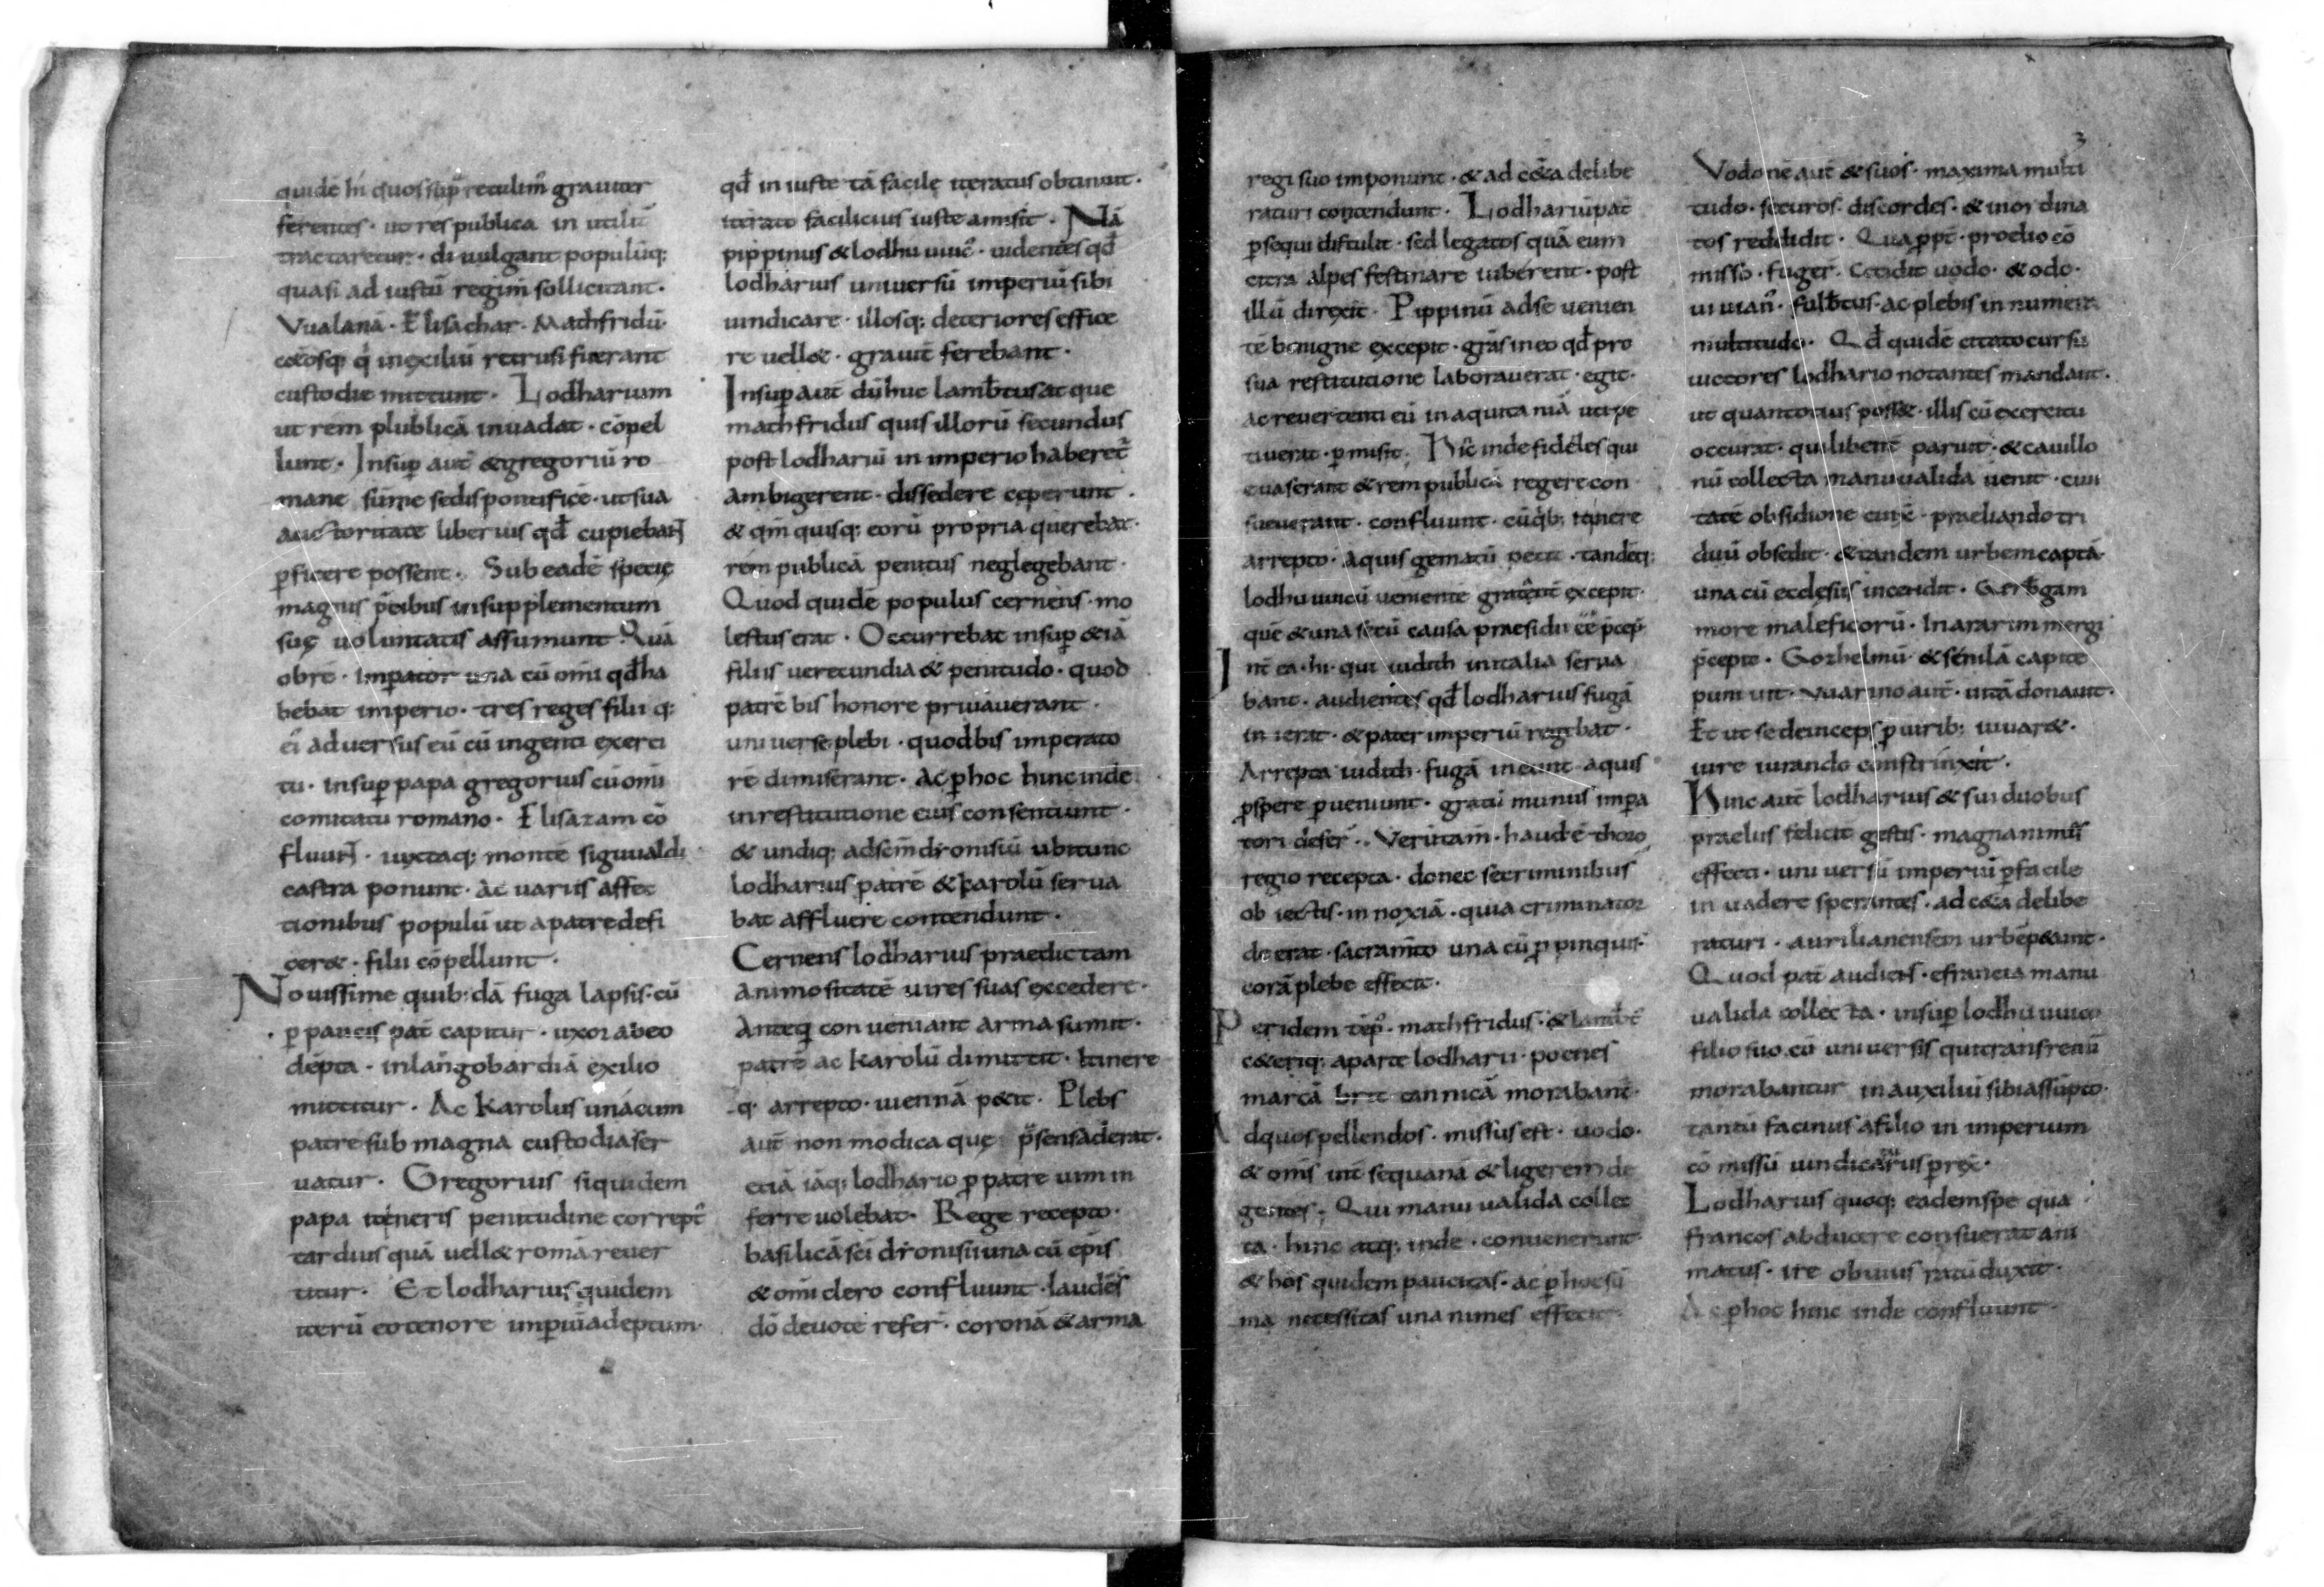 quidē hi quos sup̄ retulim̄ grauiter
ferentes · ut res publica in utilit̄
tractaretur · diuulgant populūq;
quasi ad iustū regim̄ sollicitant ·
Vualanā · Elisachar · Mathfridū ·
c&osq; q̇ in exiliū retrusi fuerant
custodie mittunt · Lodharium
ut rem plublicā inuadat · cōpel
lunt · Insup̄ aut̄ & gregoriū ro
mane sūme sedis pontificē · ut sua
auctoritate liberius qđ cupiebaɴᴛ
p̄ficere possent · Sub eadē specie
magnis p̄cibus in supplementum
suę uoluntatis assumunt Quā
obrē · Imp̄ator una cū om̄i qđ ha
bebat imperio · tres reges filii q;
ei᷒ aduersus eū cū ingenti exerci
tu · insup̄ papa gregorius cū om̄i
comitatu romano · Elisazam cō
fluuɴᴛ · iuxtaq; monte siguualdi
castra ponunt · ac uariis affec
tionibus populū ut a patre defi
cer& · filii cōpellunt ·
Nouissime quib;dā fuga lapsis · cū
p̄ paucis pat̄ capitur · uxor ab eo
dēpta · in langobardiā exilio
mittitur · Ac Karolus unācum
patre sub magna custodia ser
uatur · Gregorius siquidem
papa itineris penitudine correpť
tardius quā uell& romā reuer
titur · Et lodharius quidem
iterū eo tenore imp̄iū adeptum ·
qđ in iuste tā facile iteratus obtinuit ·
iterato facilicius iuste amisit · Nā
pippinus & lodhuuuic᷒ · uidentes qđ
lodharius uniuersū imperiū sibi
uindicare · illosq; deteriores effice
re uell& · grauit̄ ferebant ·
Insup̄ aut̄ dū huc lamb̄tus at que
mathfridus quis illorū secundus
post lodhariū in imperio haberet᷑
ambigerent · dissedere ceperunt ·
& qm̄ quisq; eorū propria querebat ·
rem publicā penitus neglegebant ·
Quod quidē populus cernens · mo
lestus erat · Occurrebat insup̄ &iā
filiis uerecundia & penitudo · quod
patrē bis honore priuauerant ·
uniuerse plebi · quod bis imperato
rē dimiserant · Ac p̄ hoc hinc inde
in restitutione eius consentiunt ·
& undiq; ad sc̄m dionisiū ubi tunc
lodharius patrē & karolū serua
bat affluere contendunt ·
Cernens lodharius praedictam
animositatē uires suas excedere ·
Anteq̄ conueniant arma sumit ·
patrē ac karolū dimittit · Itinere
q· arrepto · uiennā p&it · Plebs
aut̄ non modica quę p̄sens aderat ·
etiā iāq; lodhario p̄ patre uim in
ferre uolebat · Rege recepto ·
basilicā sc̄i dionisii una cū ep̄is
& om̄i clero confluunt · laudes
dō deuote refer̄ · coronā & arma
regi suo imponunt · & ad c&̄a delibe
raturi contendunt · Lodhariū pat̄
p̄sequi distulit · sed legatos quā eum
citra alpes festinare iuberent · post
illū direxit · Pippinū ad se uenien
tē benigne excepit · grās in eo qđ pro
sua restitutione laborauerat · egit ·
ac reuertenti eū in aquitaniā uti pe
tiuerat · p̄misit · Hic̄ inde fideles qui
euaserant & rem publicā regere con
sueuerant · confluunt · cū q̄b; itinere
arrepto · aquis gematū petit · tandēq;
lodhuuuicū uenientē gratāt̄ excepit ·
quē & una secū causa praesidii ēē p̄cep̄ ·
Int̄ ea · hi · qui iudith in italia serua
bant · audientes qđ lodharius fugā
inierat · & pater imperiū regebat ·
Arrepta iudith · fugā ineunt · aquis
p̄spere p̄ueniunt · gratū munus imp̄a
tori defer̄ · · Verūtam̄ · haud ē thoro
regio recepta · donec se criminibus
obiectis · innoxiā · quia criminator
deerat · sacram̄to una cū p̄pinquis
corā plebe effecit ·
Per idem tēp᷒ · mathfridus · & lamb̄t᷒
c&eriq; a parte lodharii · poenes
marcā brit tannicā morabant᷑ ·
Ad quos pellendos · missus est · uodo ·
& om̄s int̄ sequanā & ligerem de
gentes · Qui manu ualida collec
ta · hinc atq; inde · conuenerunt
& hos quidem paucitas · ac p̄ hoc sū
ma necessitas unanimes effecit ·
3
Vodonē aut̄ & suos · maxima multi
tudo · securos · discordes · & inordina
tos reddidit · Quap̄pt̄ · proelio cō
misso · fuger̄ · Cecidit uodo · & odo ·
uiuian᷒ · fulb̄tus · ac plebis innumera
multitudo · Qđ quidē citato cursu
uictores lodhario notantes mandant ·
ut quantotius poss& · illis cū exercitu
occurat · qui libent̄ paruit · & cauillo
nū collecta manu ualida uenit · ciui
tatē obsidione cinx̄ · praeliando tri
duū obsedit · & tandem urbem captā
una cū ecclesiis incendit · Gerb̄gam
more maleficorū · In ararim mergi
p̄cepit · Gozhelmū · & senilā capite
puniuit · Vuarino aut̄ · uitā donauit ·
Et ut se deinceps p̄ uirib; iuuar& ·
iure iurando constrinxit ·
Hinc aut̄ lodharius & sui duobus
praeliis felicit̄ gestis · magnanimes
effecti · uniuersū imperiū p̄facile
inuadere sperantes · ad c&̄a delibe
raturi · aurilianensem urbē p&unt ·
Quod pat̄ audiens · e francia manu
ualida collecta · insup̄ lodhuuuico
filio suo cū uniuersis qui trans renū
morabantur in auxiliū sibi assūpto ·
tantū facinus a filio in imperium
cōmissū uindicaturus p̄rex̄ ·
Lodharius quoq; eadem spe qua
francos abducere consuerat ani
matus · ire obuius ratū duxit ·
Ac p̄ hoc hinc inde confluunt ·